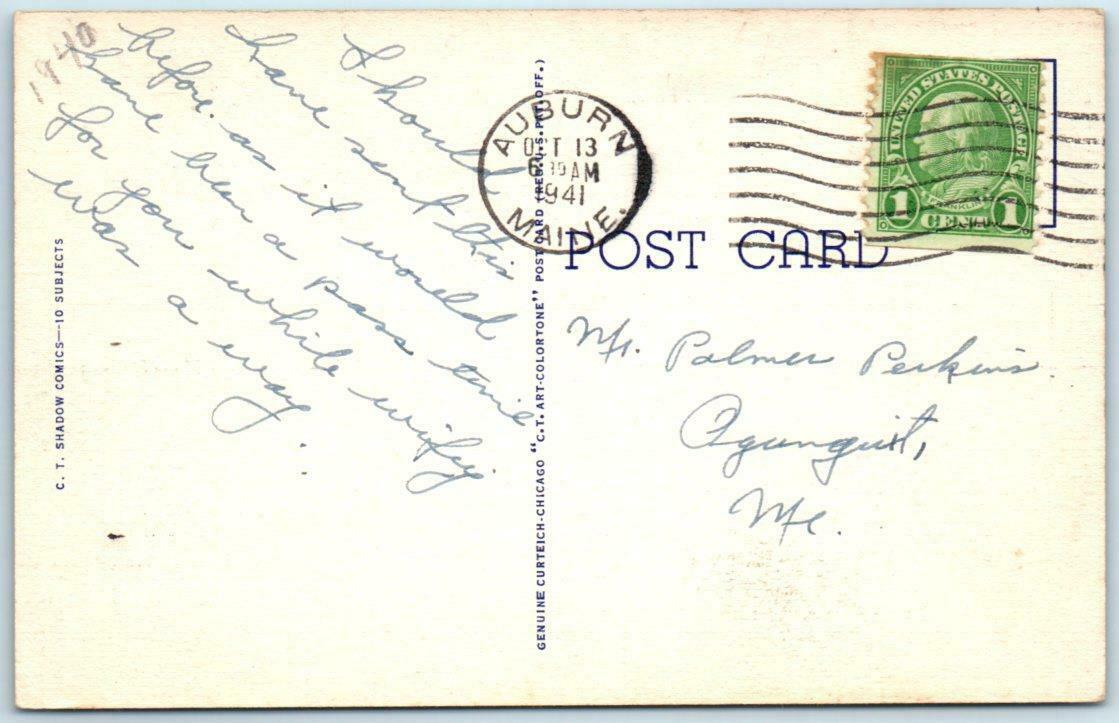 1940
I should
have sent this
before as it would
have been a pass time
for you while wifey
was a way.
C. T. SHADOW COMICS—10 SUBJECTS
GENUINE CURTEICH-CHICAGO "C. T. ART-COLORTONE" POST CARD (REG. U.S. PAT. OFF.)
AUBURN
OCT 13
AM
1941
MAINE.
UNITED STATES POSTAGE
FRANKLIN
1 CENT 1
POST CARD
Mr. Palmer Perkins.
Ogunquit,
Me.